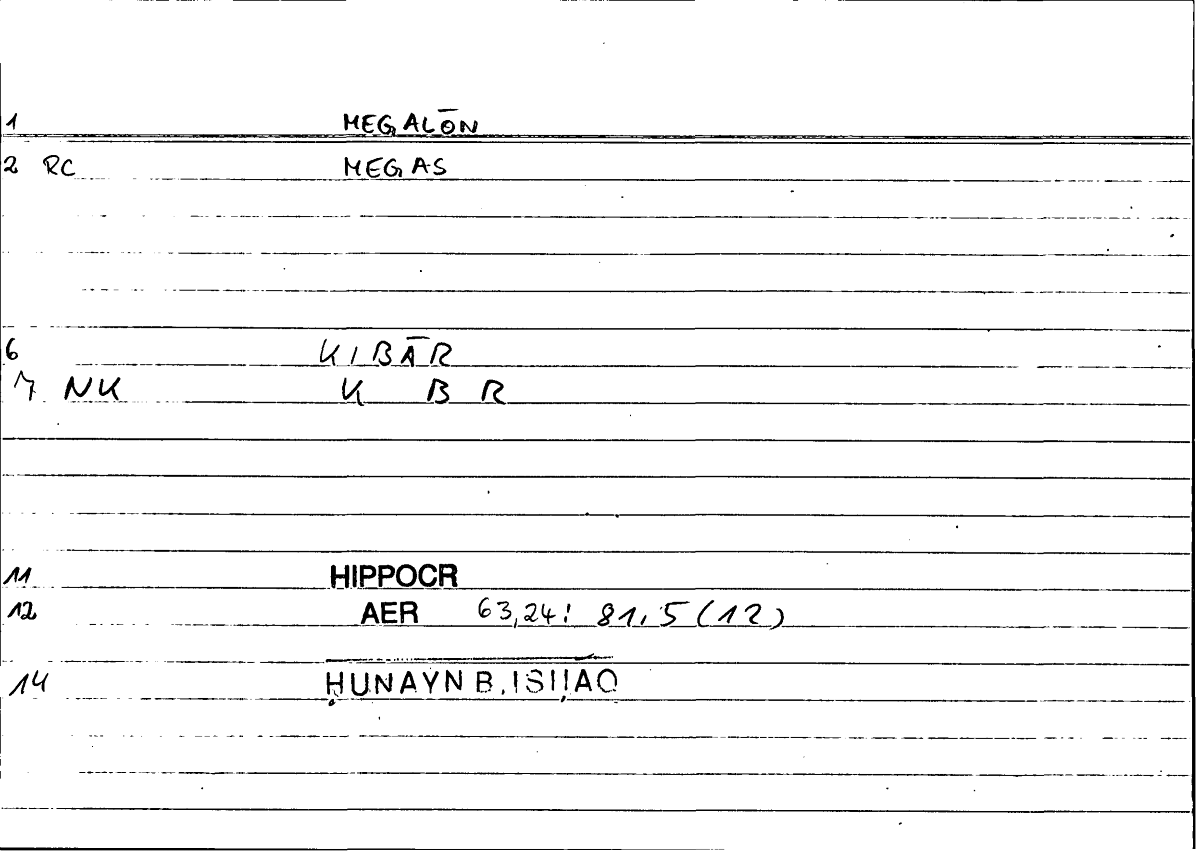 1 MEGALŌN
2 RC MEGAS
6 KIBĀR
7 NK K B R
11 HIPPOCR
12 AER 63,24: 81,5 (12)
14 ḤUNAYN B. ISḤAQ